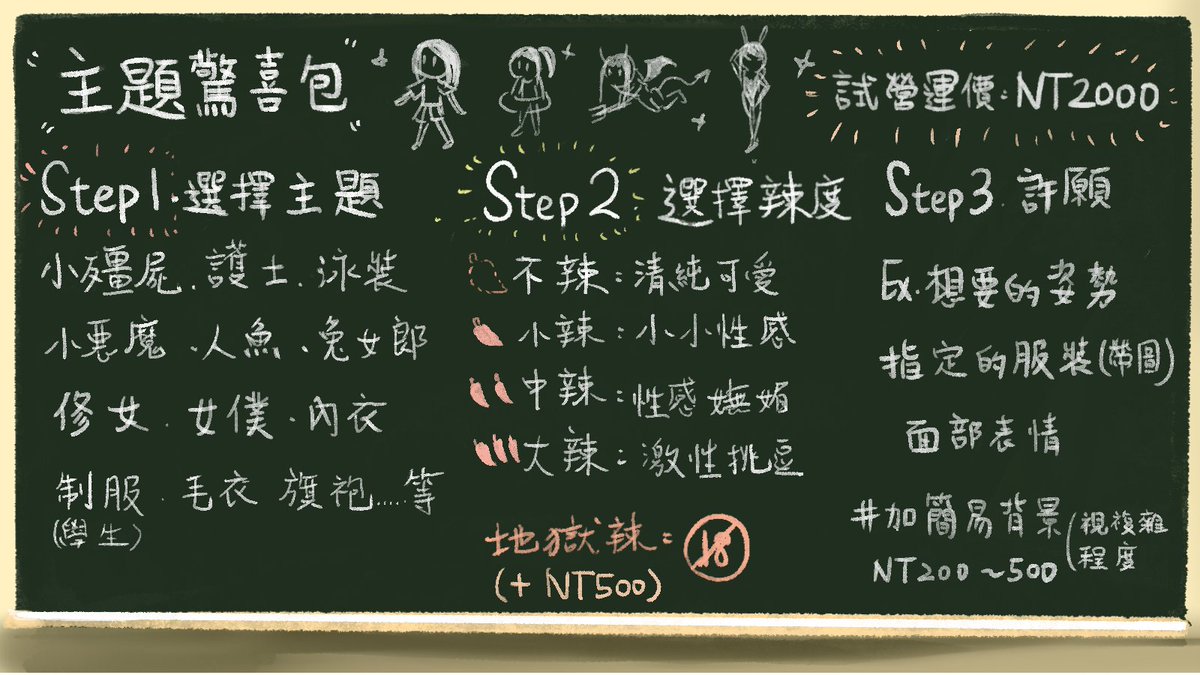 主題驚喜包
試營運價：NT2000
Step1.選擇主題
小殭屍.護士.泳裝
小惡魔.人魚、兔女郎
修女.女僕.內衣
制服.毛衣 旗袍.....等
(學生)
Step2 選擇辣度
不辣：清純可愛
小辣：小小性感
中辣：性感嫵媚
大辣：激性挑逗
地獄辣：18
(+ NT500)
Step3.許願
Ex.想要的姿勢
指定的服裝(帶圖)
面部表情
#加簡易背景
NT200～500
(視複雜
程度